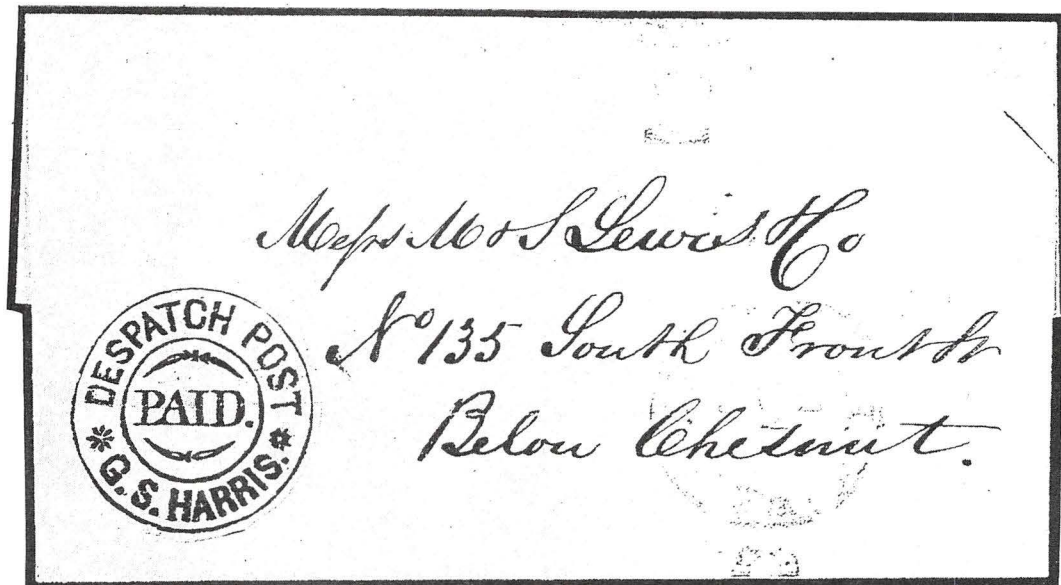 Mess M & S Lewis & Co
No 135 South Front St
Below Chesnut.
DESPATCH POST
PAID.
* G. S. HARRIS. *